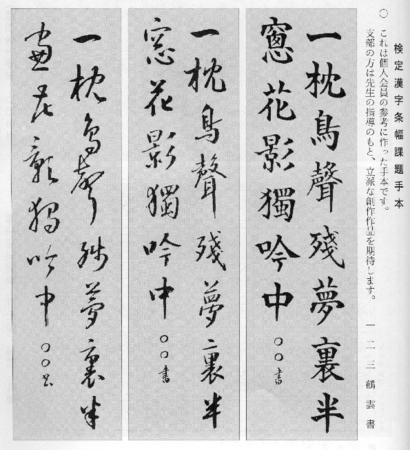 検定漢字条幅課題手本
○ これは個人会員の参考に作った手本です。
支部の方は先生の指導のもと、立派な創作作品を期待します。
一二三鶴雲書
一枕鳥聲殘夢裏半
窓花影獨吟中 ○○書
一枕鳥聲殘夢裏半
窓花影獨吟中 ○○書
一枕鳥聲殘夢裏半
窓花影獨吟中 ○○書